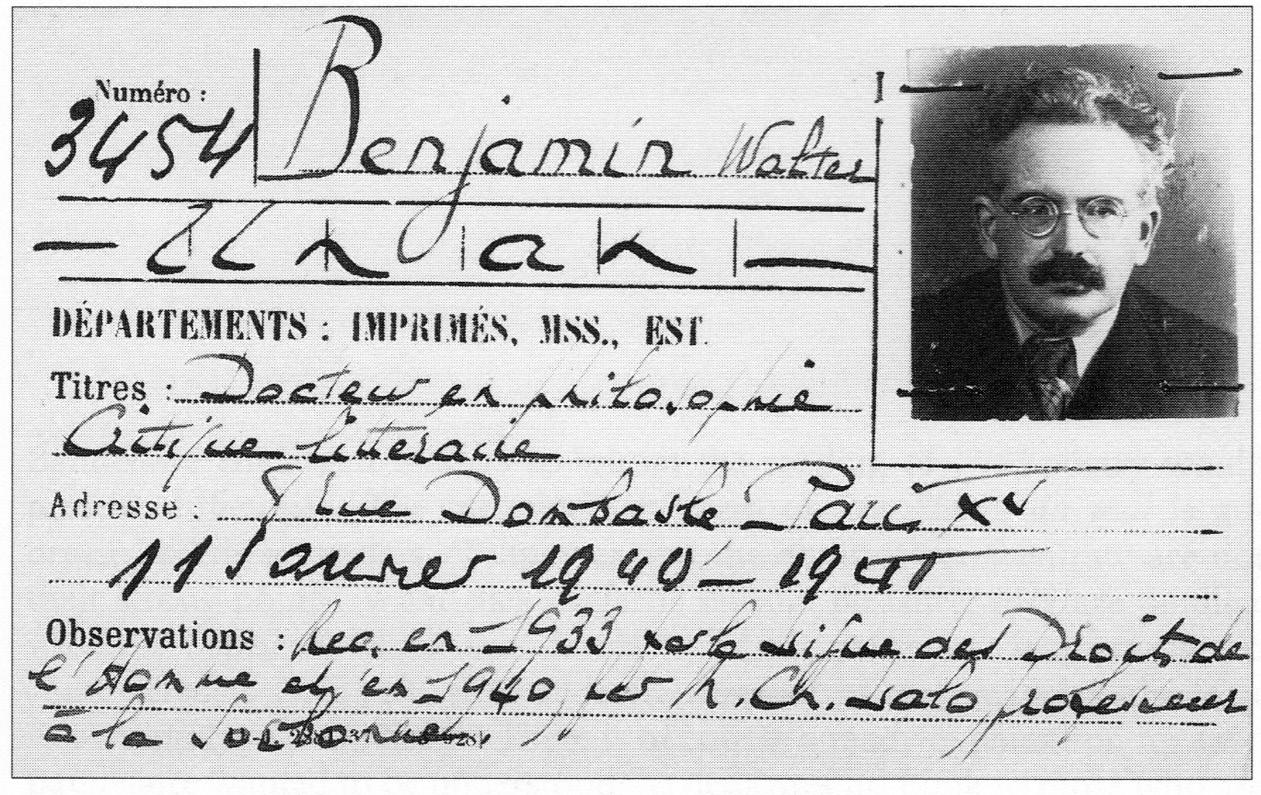 Numéro :
3454
Benjamin Walter
— Un an —
DÉPARTEMENTS : IMPRIMÉS, MSS., EST.
Titres : Docteur en philosophie
Critique litteraire
Adresse : rue Dombasle Paris XV
11 Janvier 1940 - 1941
Observations : Rec. en 1933 par la Ligue des Droits de
l'Homme et en 1940 par M. Ch. Lalo professeur
à la Sorbonne